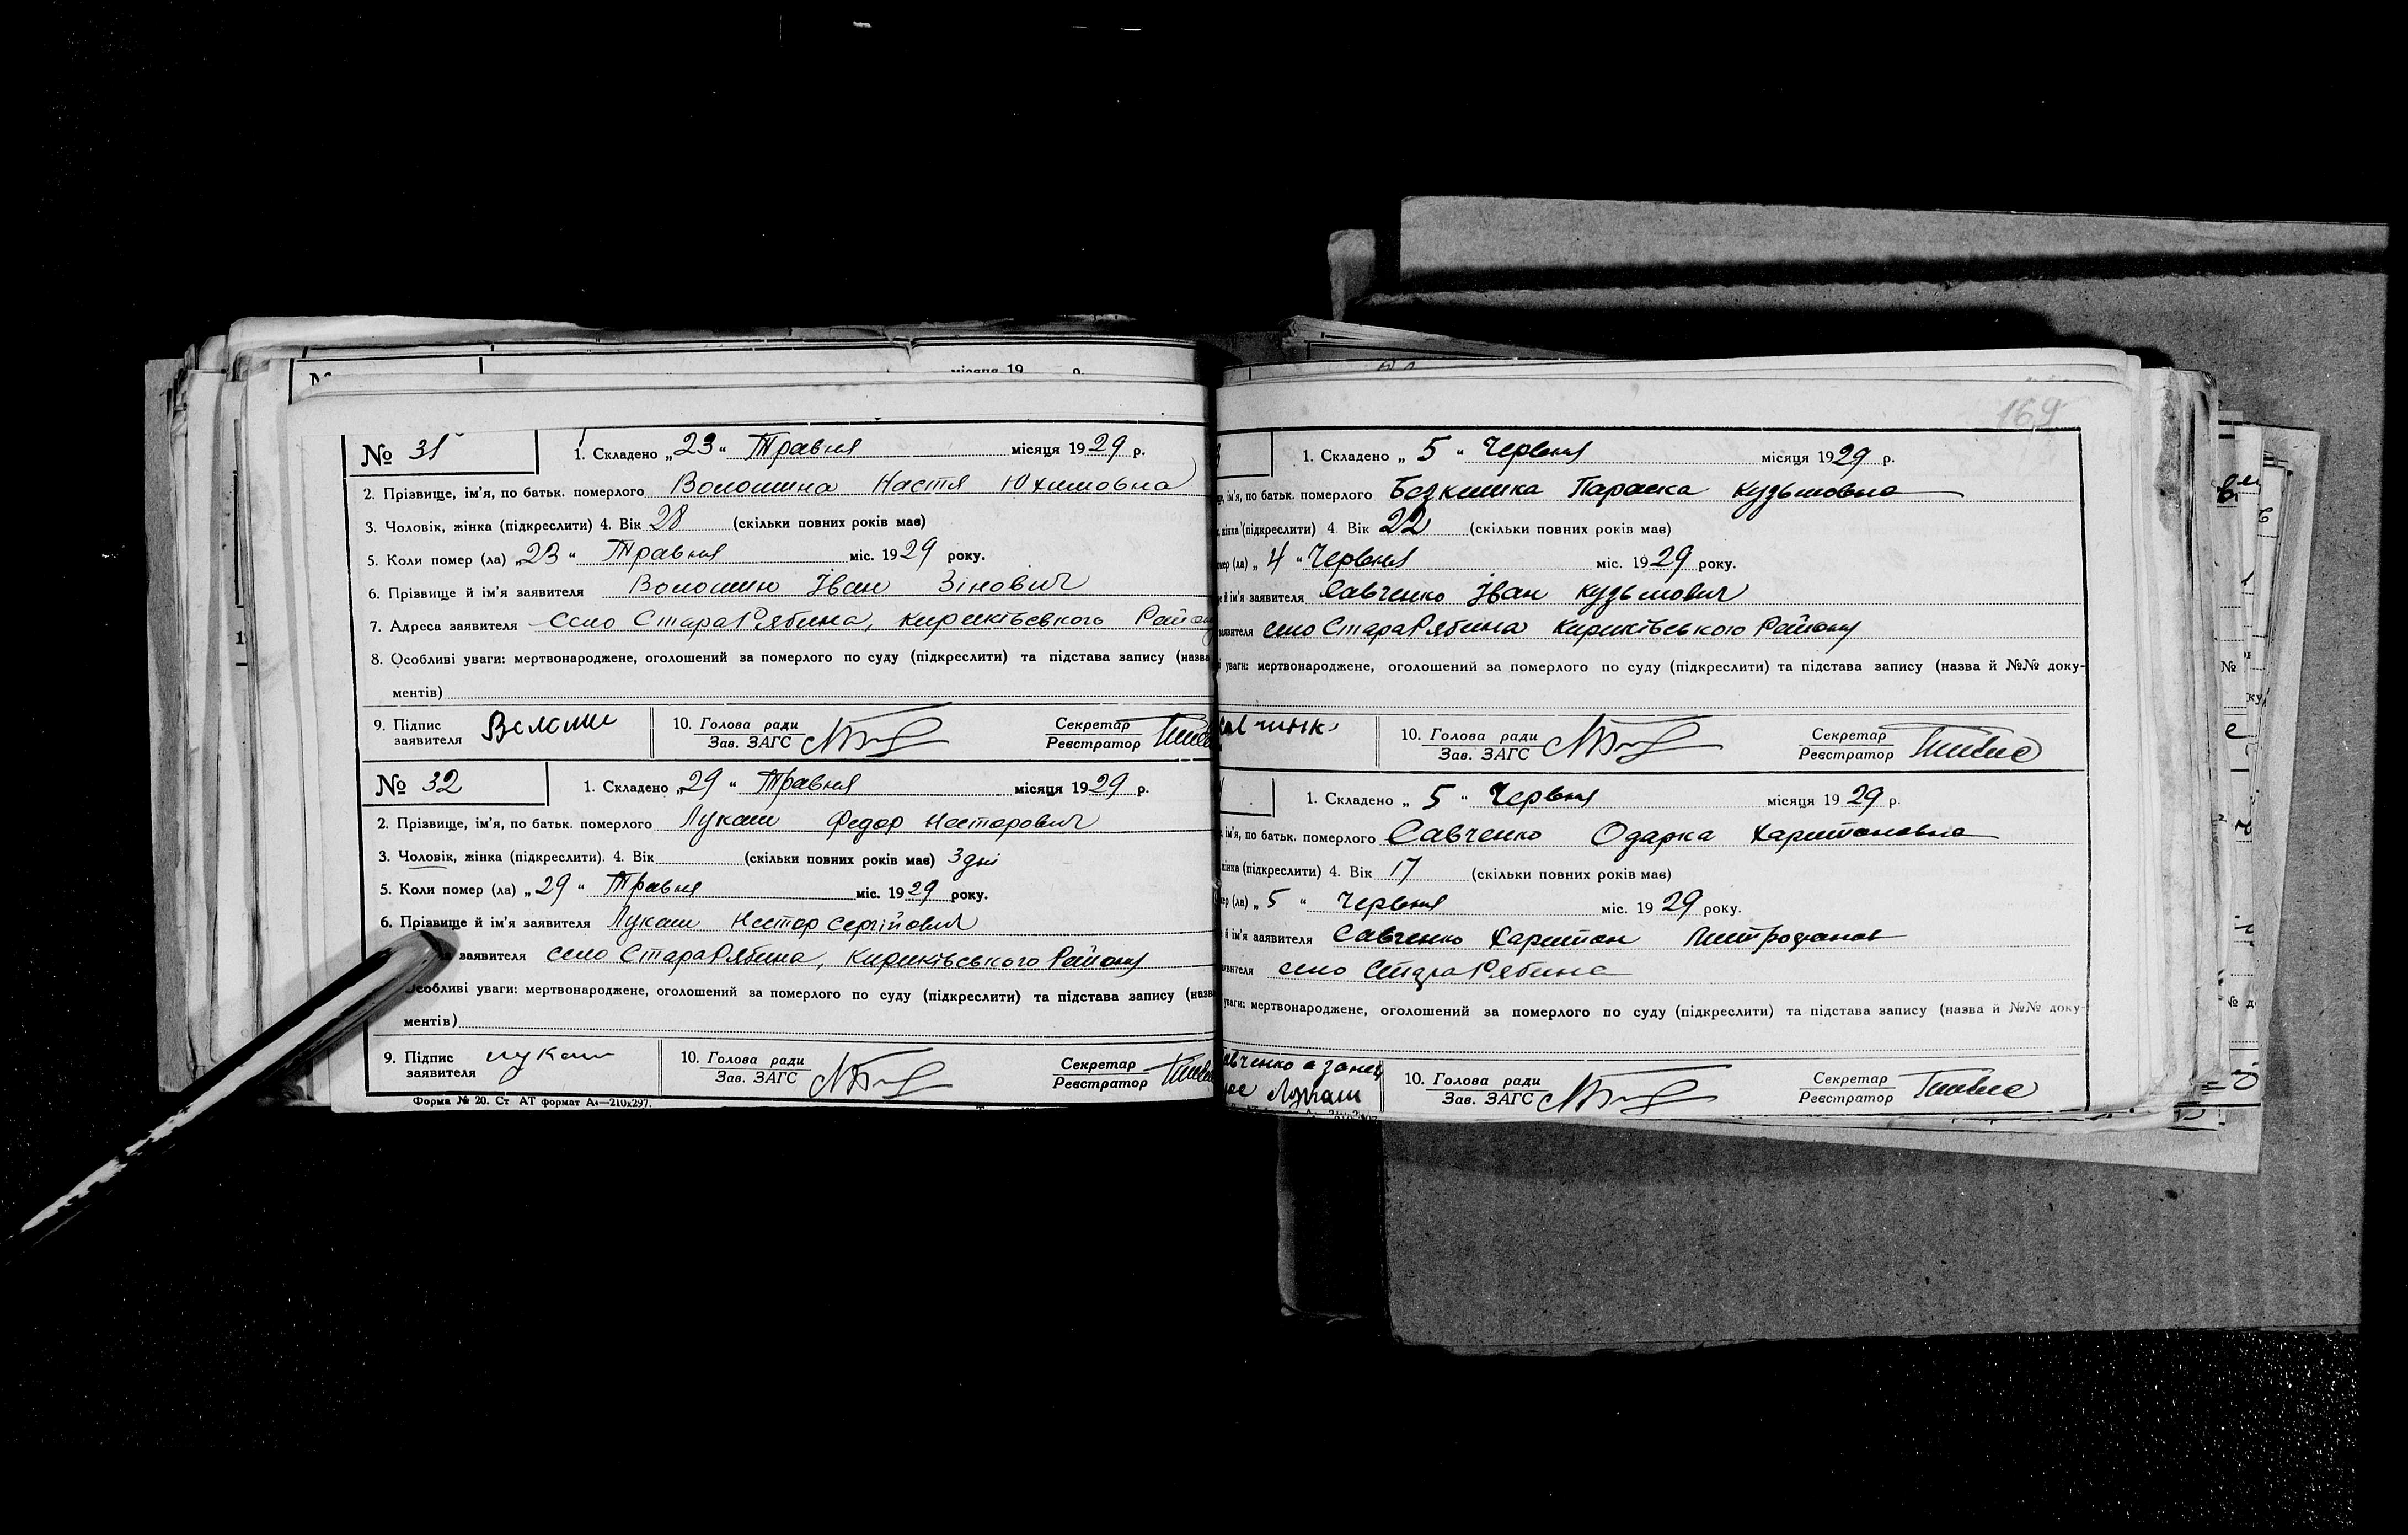 № 31
1. Складено „23“ Травня місяця 1929 р.
2. Прізвище, ім'я, по батьк. померлого Волошина Настя Юхимовна
3. Чоловік, жінка (підкреслити) 4. Вік 28 (скільки повних років має)
5. Коли помер (ла) „23“ Травня міс. 1929 року.
6. Прізвище й ім'я заявителя Волошин Іван Зінович
7. Адреса заявителя Село Стара Рябина, Кириківського Району
8. Особливі уваги: мертвонароджене, оголошений за померлого по суду (підкреслити) та підстава запису (назва
ментів)
9. Підпис заявителя Волоши
10. Голова ради
Зав. ЗАГС
Секретар
Реєстратор
№ 32
1. Складено „29“ Травня місяця 1929 р.
2. Прізвище, ім'я, по батьк. померлого Лукаш Федор Несторович
3. Чоловік, жінка (підкреслити). 4. Вік (скільки повних років має) 3 дні
5. Коли помер (ла) „29“ Травня міс. 1929 року.
6. Прізвище й ім'я заявителя Лукаш Нестор Сергійович
заявителя село Стара Рябина, Кириківського Району
Особливі уваги: мертвонароджене, оголошений за померлого по суду (підкреслити) та підстава запису (назва
ментів)
9. Підпис заявителя Лукаш
10. Голова ради
Зав. ЗАГС
Секретар
Реєстратор
Форма № 20. Ст АТ формат А4—210х297.
169
1. Складено „5“ Червня місяця 1929 р.
ім'я, по батьк. померлого Безкишка Параска Кузьмовна
жінка (підкреслити) 4. Вік 22 (скільки повних років має)
(ла) „4“ Червня міс. 1929 року.
й ім'я заявителя Савченко Іван Кузьмович
село Стара Рябина Кириківського Району
уваги: мертвонароджене, оголошений за померлого по суду (підкреслити) та підстава запису (назва й №№ доку-
10. Голова ради
Зав. ЗАГС
Секретар
Реєстратор
1. Складено „5“ Червня місяця 1929 р.
ім'я, по батьк. померлого Савченко Одарка Харитоновна
жінка (підкреслити) 4. Вік 17 (скільки повних років має)
(ла) „5“ Червня міс. 1929 року.
й ім'я заявителя Савченко Харитон Митрофанов
село Стара Рябина
уваги: мертвонароджене, оголошений за померлого по суду (підкреслити) та підстава запису (назва й №№ доку-
Лукаш
10. Голова ради
Зав. ЗАГС
Секретар
Реєстратор